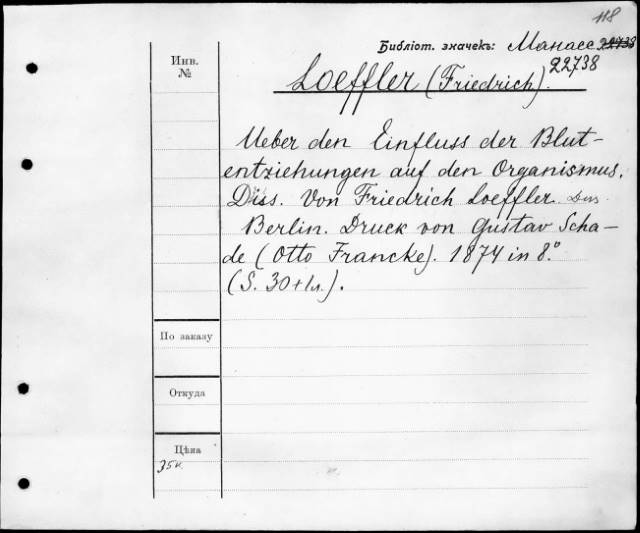 118
Библіот. значекъ: Манасс 22733
22738
Инв.
№
Loeffler (Friedrich).
Ueber den Einfluss der Blut-
entziehungen auf den Organismus.
Diss. Von Friedrich Loeffler
Berlin. Druck von Gustav Scha-
de (Otto Francke). 1874 in 8.°
(S. 30+1л.).
По заказу
Откуда
Цѣна
35к.